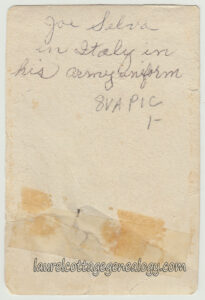 Joe Selva
in Italy in
his army uniform
8VA PIC
1-
laurelcottagegenealogy.com